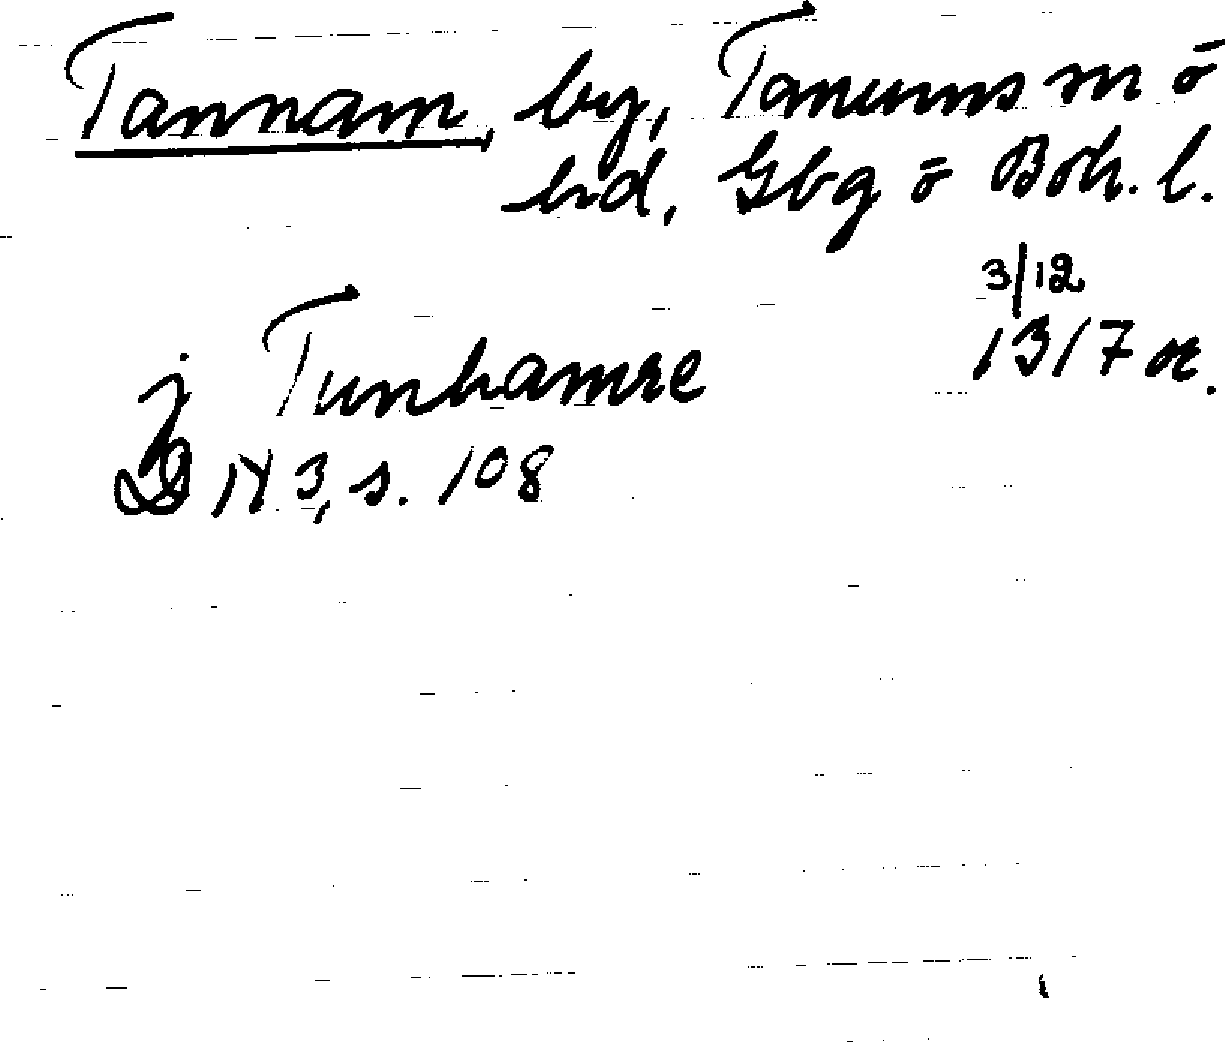 Tannam, by, Tanums sn o
hd, Gbg o Boh. l.
3/12
1317 or.
j Tunhamre
DN 3, s. 108